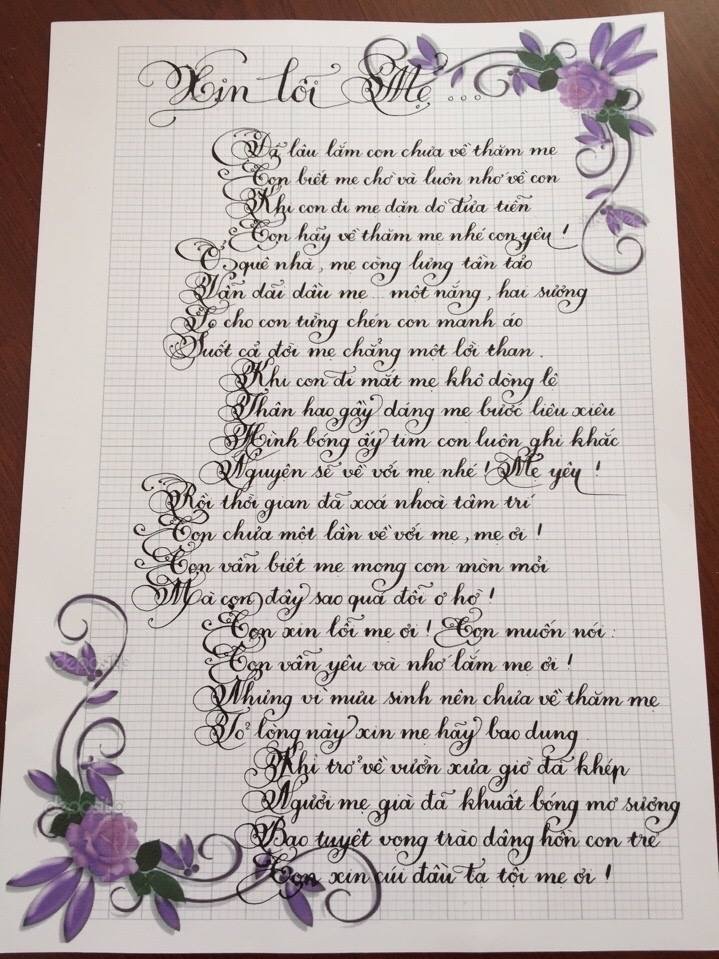 Xin lỗi Mẹ...
Đã lâu lắm con chưa về thăm mẹ
Con biết mẹ chờ và luôn nhớ về con
Khi con đi mẹ dặn dò đưa tiễn
Con hãy về thăm mẹ nhé con yêu !
Ở quê nhà, mẹ còng lưng tần tảo
Vẫn dãi dầu mẹ một nắng, hai sương
Lo cho con từng chén cơm manh áo
Suốt cả đời mẹ chẳng một lời than.
Khi con đi mắt mẹ khô dòng lệ
Thân hao gầy dáng mẹ bước liêu xiêu
Hình bóng ấy tim con luôn ghi khắc
Nguyện sẽ về với mẹ nhé ! Mẹ yêu !
Rồi thời gian đã xoá nhoà tâm trí
Con chưa một lần về với mẹ, mẹ ơi !
Con vẫn biết mẹ mong con mòn mỏi
Mà con đây sao quá đỗi ơ hờ !
Con xin lỗi mẹ ơi ! Con muốn nói :
Con vẫn yêu và nhớ lắm mẹ ơi !
Nhưng vì mưu sinh nên chưa về thăm mẹ
Tỏ lòng này xin mẹ hãy bao dung.
Khi trở về vườn xưa giờ đã khép
Người mẹ già đã khuất bóng mờ sương
Bao tuyệt vọng trào dâng hồn con trẻ
Con xin cúi đầu tạ tội mẹ ơi !